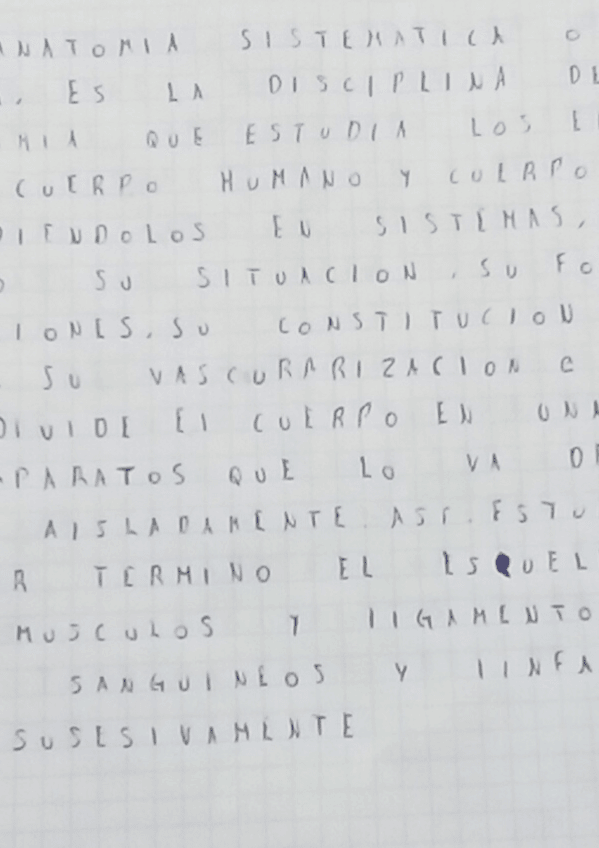 NATOMIA SISTEMATICA O
, ES LA DISCIPLINA DE
MIA QUE ESTUDIA LOS E
CUERPO HUMANO Y CUERPO
DIENDOLOS EN SISTEMAS,
SU SITUACION, SU FO
IONES, SU CONSTITUCION
SU VASCURARIZACION C
DIVIDE El CUERPO EN UNA
PARATOS QUE LO VA DE
AISLADAMENTE. ASI. ESTU
R TERMINO EL ESQUEL
MUSCULOS Y lIGAMENTO
SANGUINEOS Y lINFA
SUSESIVAMENTE